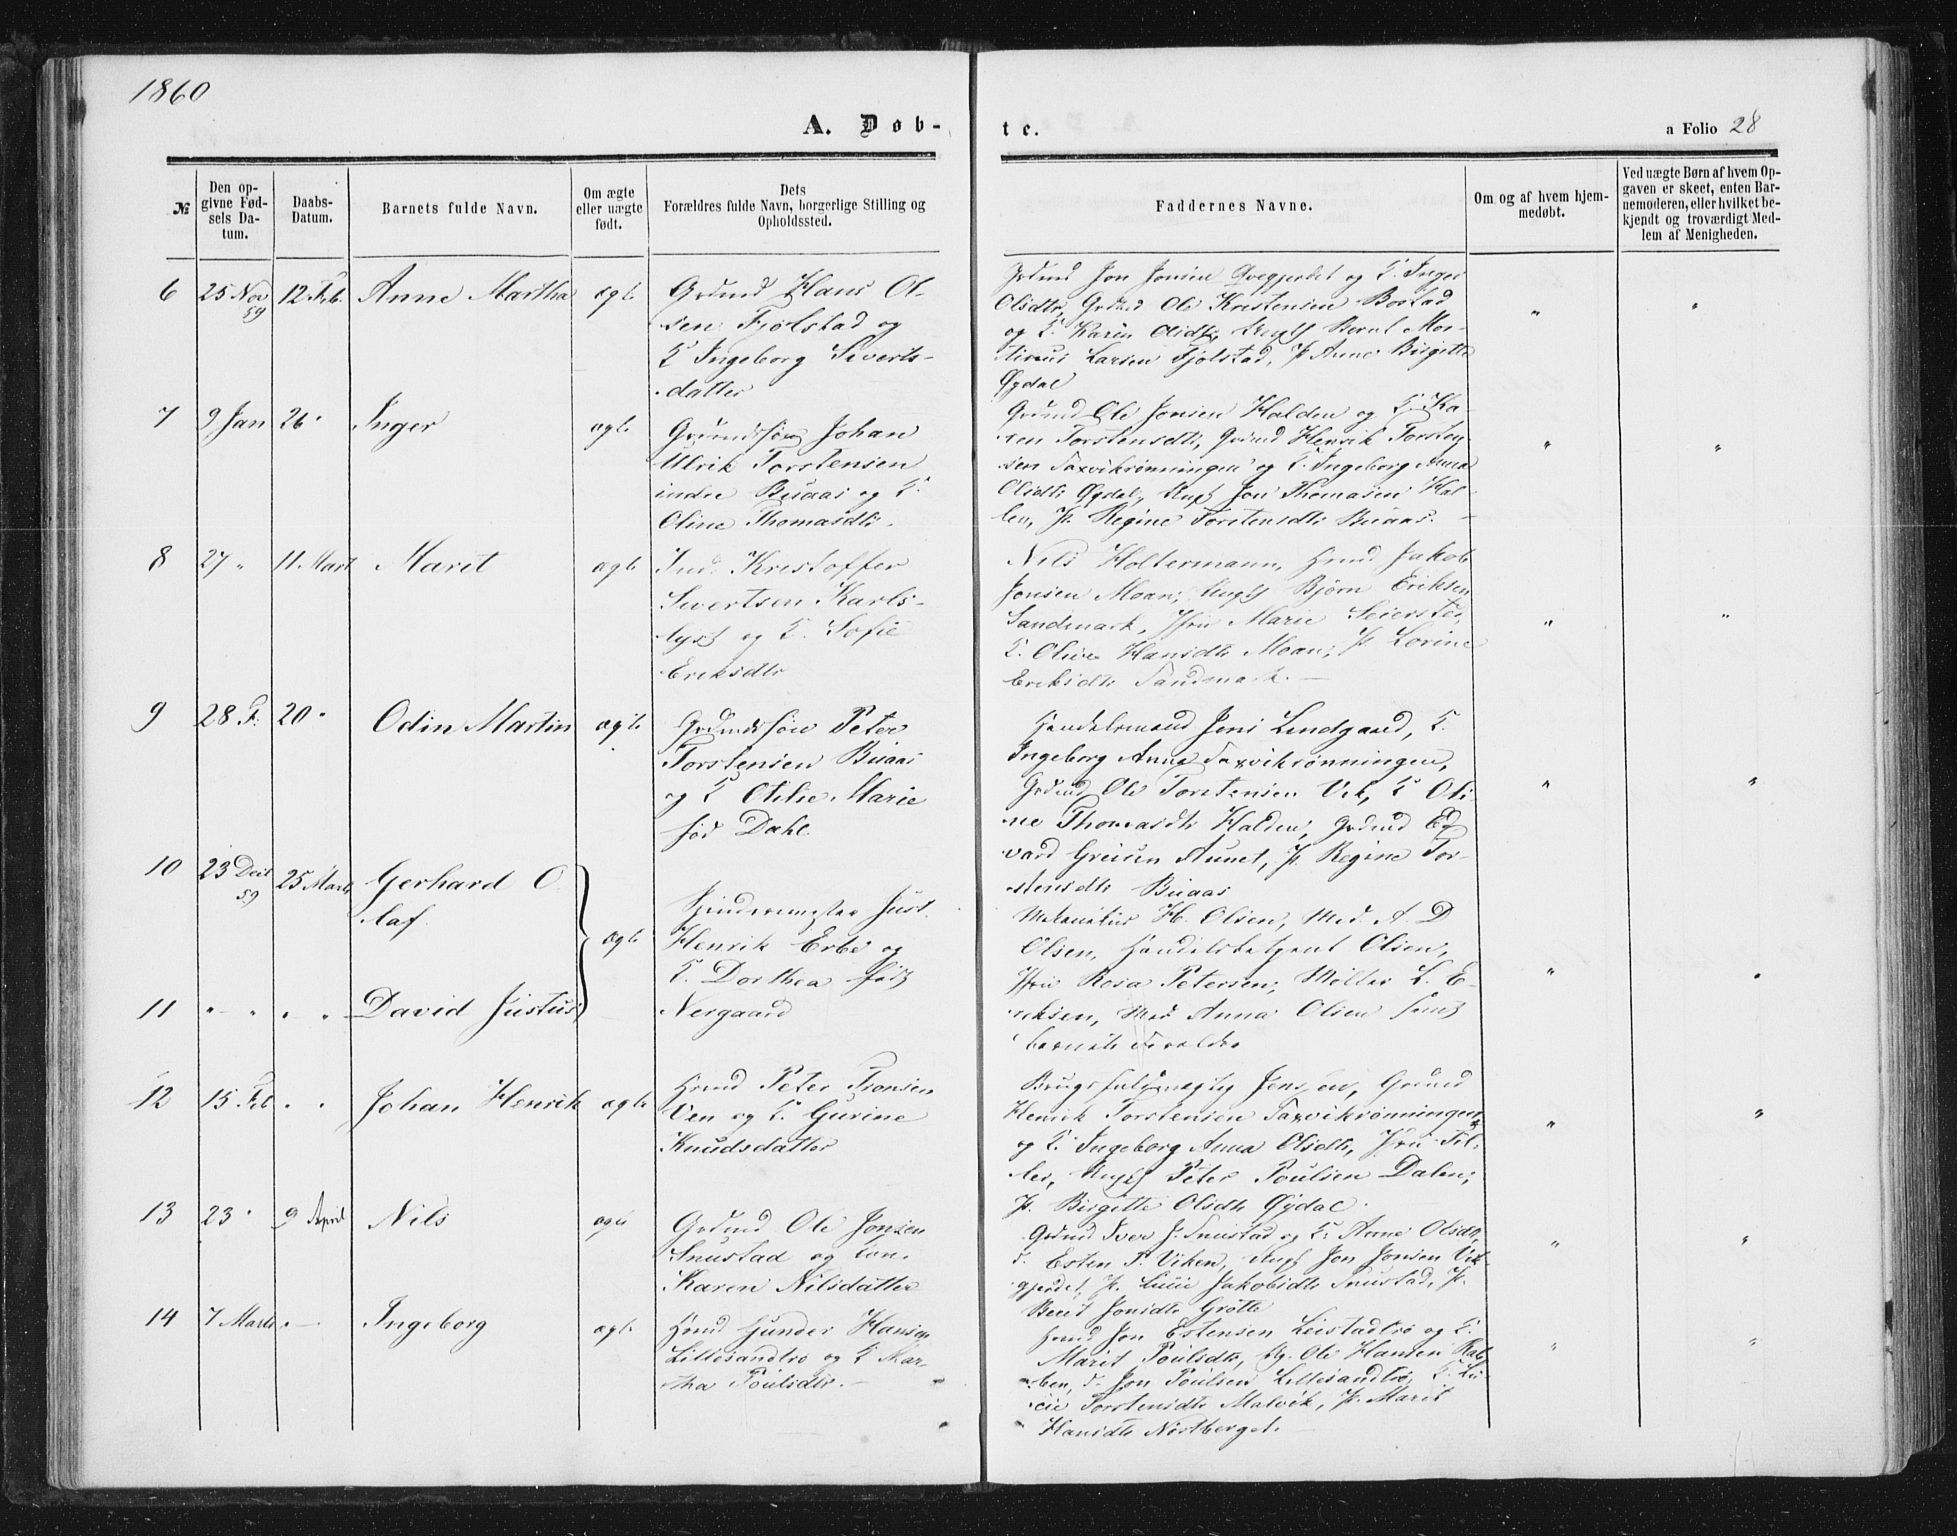 1860
A. Døb-
te.
a Folio 28
№
Den op-
givne Fød-
sels Da-
tum.
Daabs-
Datum.
Barnets fulde Navn.
Om ægte
eller uægte
født.
Dets
Forældres fulde Navn, borgerlige Stilling og
Opholdssted.
Faddernes Navne.
Om og af hvem hjem-
medøbt.
Ved uægte Børn af hvem Op-
gaven er skeet, enten Bar-
nemoderen, eller hvilket be-
kjendt og troværdigt Med-
lem af Menigheden.
6 25 Nov 59 12 Feb. Anne Martha ægte
Grdmd Hans Ol-
sen Fjølstad og
K Ingeborg Siverts-
datter
Grdmd Jon Jonsen Qvegjerdet og K. Inger
Olsdtr, Grdmd Ole Kristensen Bostad
og K. Karen Olsdtr, Ungk Bernt Mor-
tinus Larsen Fjølstad, P. Anne Birgitte
Øydal
" "
7 9 Jan 26 " Inger ægte
Grdmandsføn Johan
Ulrik Torstensen
indre Buaas og K.
Oline Thomasdtr.
Grdmd Ole Jonsen Halden og K. Ka-
ren Torstensdtr, Grdmd Henrik Torsten-
sen Saxvikrønningen og K. Ingeborg Anna
Olsdtr Øydal, Ungk Jon Thomasen Hal-
len, P. Regine Torstensdtr Buaas.
" "
8 27 " 11 Mart Marit ægte
Ind. Kristoffer
Sivertsen Karls-
lyst og K. Sofie
Eriksdtr
Nils Holtermann, Hmd Jakob
Jonsen Moan, Ungk Bjørn Eriksen
Sandmark, Jfru Marie Seiersted,
K. Oline Hansdtr Moan, P. Lorine
Eriksdtr Sandmark.
" "
9 28 F. 20 " Odin Martin ægte
Grdmdsføn Peter
Torstensen Buaas
og K Otilie Marie
fød Dahl
Handelsmand Jens Lindgaard, K.
Ingeborg Anna Saxvikrønningen,
Grdmd Ole Torstensen Vik, K Oli-
ne Thomasdtr Halden, Grdmd Ed-
vard Greisen Aunet, P. Regine Tor-
stensdtr Buaas
" "
10 23 Decb 59 25 Marts Gerhard O-
laf.
ægte
Henrik Erbe og
K. Dorthea født
Nergaard
11 " " " " David Justus
H. Olsen, Mad. A. D
Olsen, Handelsbetjent Olsen,
Jfru Rosa Petersen, Møller L. E-
riksen, Mad Anna Olsen samt
barnets Forældre
" "
12 15 Feb " " Johan Henrik ægte
Hmd Peter Tronsen
Ven og K. Gurine
Knudsdatter
Brugsfuldmægtig Jenssen, Grdmd
Henrik Torstensen Saxvikrønningen
og K. Ingeborg Anna Olsdtr, Jfru Til-
ler, Ungk Peter Poulsen Dalen,
P. Birgitte Olsdtr Øydal.
" "
13 23 " 9 April Nils ægte
Grdmd Ole Jonsen
Snustad og Kon.
Karen Nilsdatter
Grdmd Iver J. Snustad og K. Anne Olsdtr,
d. Esten P. Viken, Ungk Jon Jonsen Vik-
gjerdet, P. Lucie Jakobsdtr Snustad, P.
Berit Jonsdtr Grøtte
" "
14 7 Marts " Ingeborg ægte
Hmd Gunder Hansen
Lillesandtrø og K Mar-
tha Poulsdtr.
Hmd Jon Estensen Leistadtrø og K.
Marit Poulsdtr, Ug. Ole Hansen Rab-
ben, d. Jon Poulsen Lillesandtrø, K. Lu-
cie Torstensdtr Malvik, P. Marit
Hansdtr Nostberget.
" "